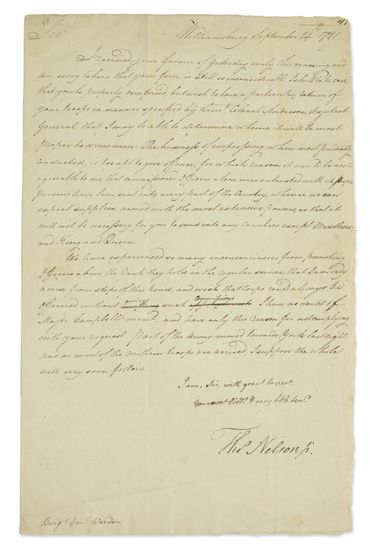 Sir Williamsburg September 26 1781
I received your favour of Yesterday early this morning and
am sorry to hear that your force is still so inconsiderable. I shall take care
that you be properly reinforced but wish to have a particular return of
your troops in manner specified by Lieut. Colonel Anderson Adjutant
General, that I may be able to determine whence it will be most
proper to draw men. The business of impressing when most prudently
conducted, is too apt to give offence, for which reason it would be more
agreeable to me that commissioned officers alone were entrusted with it. Proper
Persons have been sent into every part of the Country whence we can
expect supplies, armed with the most extensive powers, so that it
will not be necessary for you to send into any Counties except Middlesex,
and King and Queen.
We have experienced so many inconveniences from promoting
Officers above the Rank they hold in the regular service that I am very
averse from steps of this kind, and wish that corps could always be
officered without such Commissions. I have no doubt of
Major Campbell's merit and have only this reason for not complying
with your request. Part of the Army moved towards York last night
and as most of the northern troops are arrived, I suppose the whole
will very soon follow.
I am, Sir, with great respect,
Your most Obdt. & very hble Servt.
Thos Nelson Jr.
Brigr. Genl. Weedon